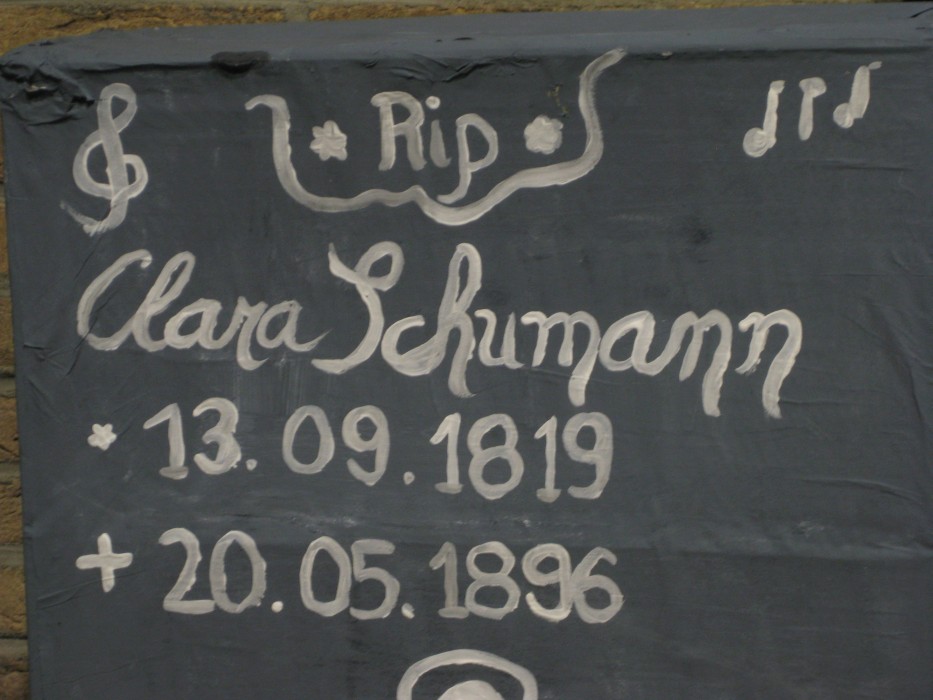 Rip
Clara Schumann
* 13. 09. 1819
+ 20. 05. 1896